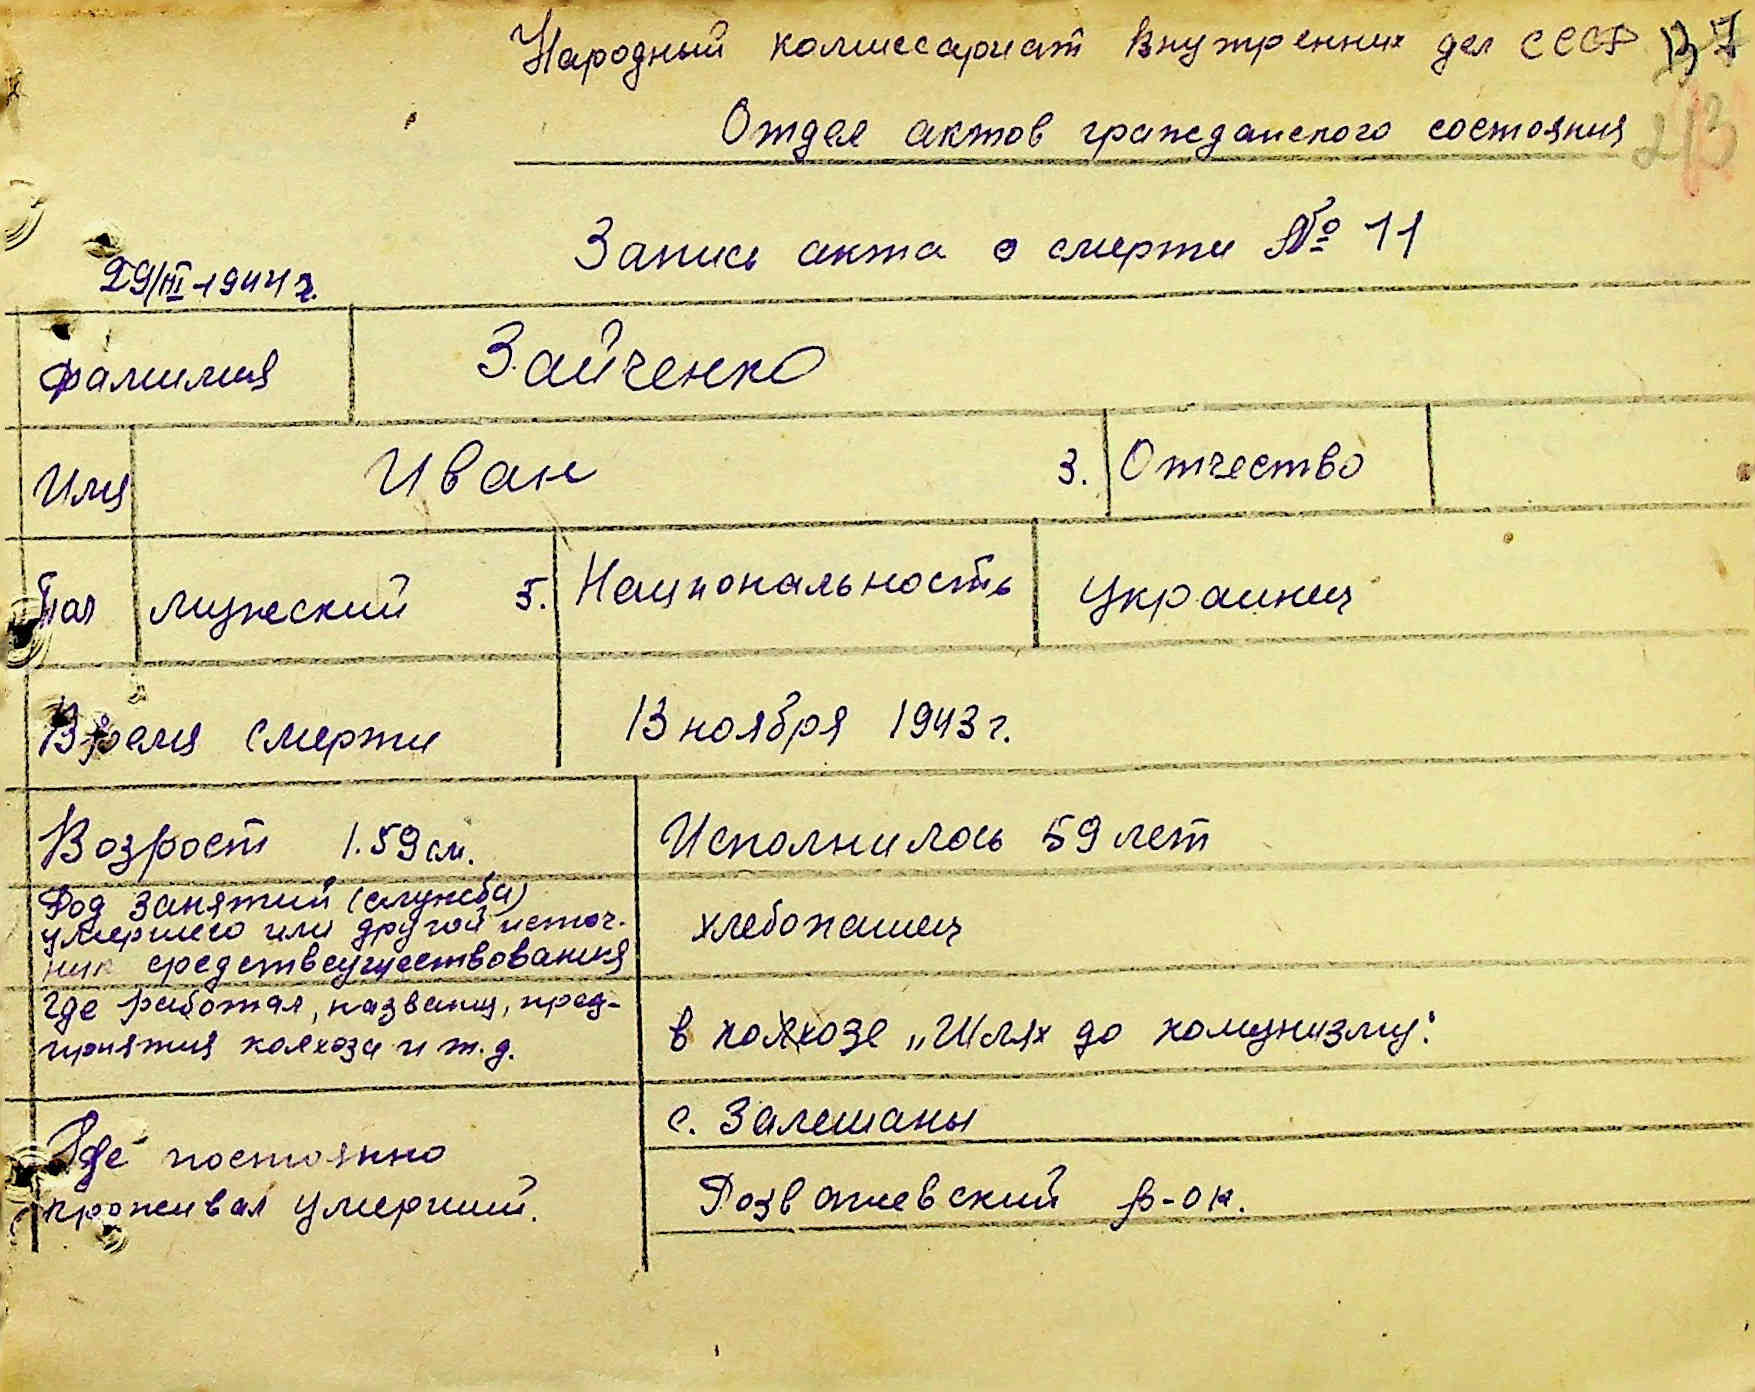 Народный комиссариат Внутренних дел СССР 37
Отдел актов гражданского состояния
Запись акта о смерти № 11
29/III-1944 г.
Фамилия Зайченко
Имя Иван 3. Отчество
Пол мужской 5. Национальность Украинец
Время смерти 13 ноября 1943 г.
Возрост 1.59 см. Исполнилось 59 лет
Род занятий (служба)
умершего или другой источ-
ник средств существования
хлебопашец
Где работал, название, пред-
приятия колхоза и т.д.
в колхозе „Шлях до комунизму"
с. Залешаны
Где постоянно
проживал умерший.
Розважевский р-он.